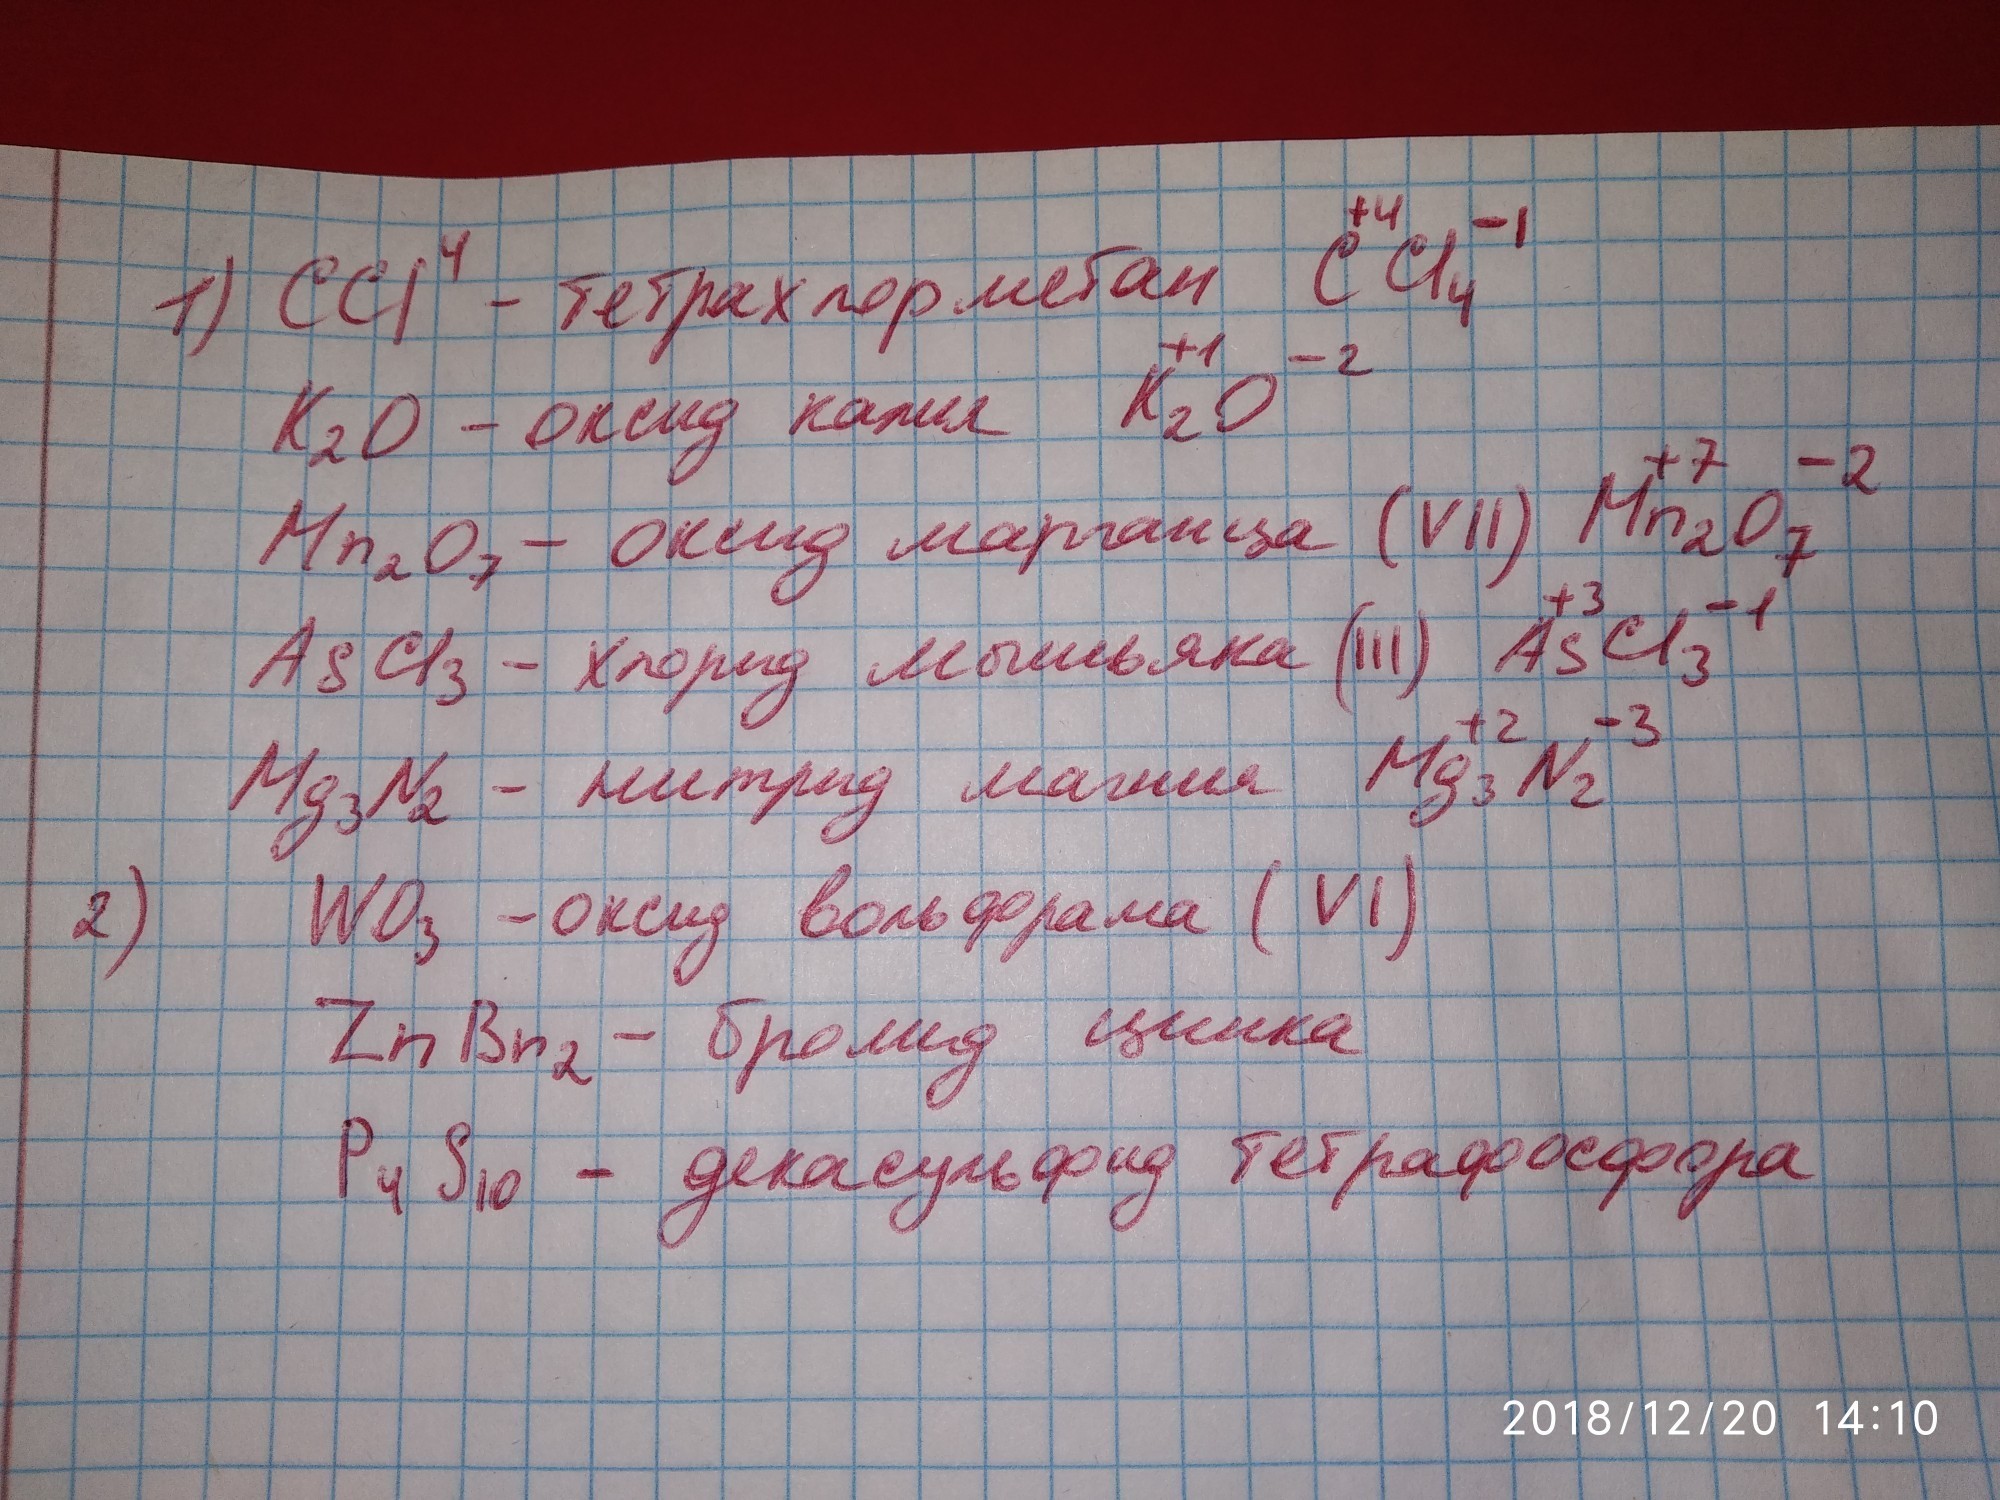 1) CCl⁴ - тетрахлорметан C⁺⁴Cl₄⁻¹
K₂O - оксид калия K₂⁺¹O⁻²
Mn₂O₇ - оксид марганца (VII) Mn₂⁺⁷O₇⁻²
AsCl₃ - хлорид мышьяка (III) As⁺³Cl₃⁻¹
Mg₃N₂ - нитрид магния Mg₃⁺²N₂⁻³
2) WO₃ - оксид вольфрама (VI)
ZnBn₂ - бромид цинка
P₄S₁₀ - декасульфид тетрафосфора
2018/12/20 14:10